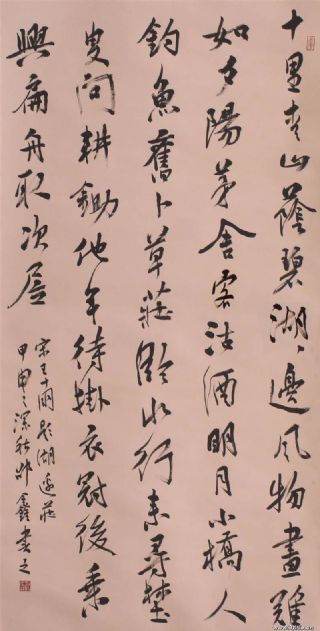 十里青山蔭碧湖々邊風物畫難
如夕陽茅舍客沽酒明月小橋人
釣魚舊卜草莊臨水行來尋埜
叟問耕鋤他年待掛衣冠後乘
興扁舟取次居
宋王十朋題湖邊莊
甲申之深秋鑫書之